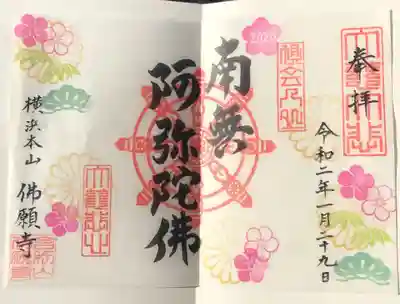 奉拝
令和二年一月二十九日
2020
南無
阿弥陀佛
横浜本山 佛願寺